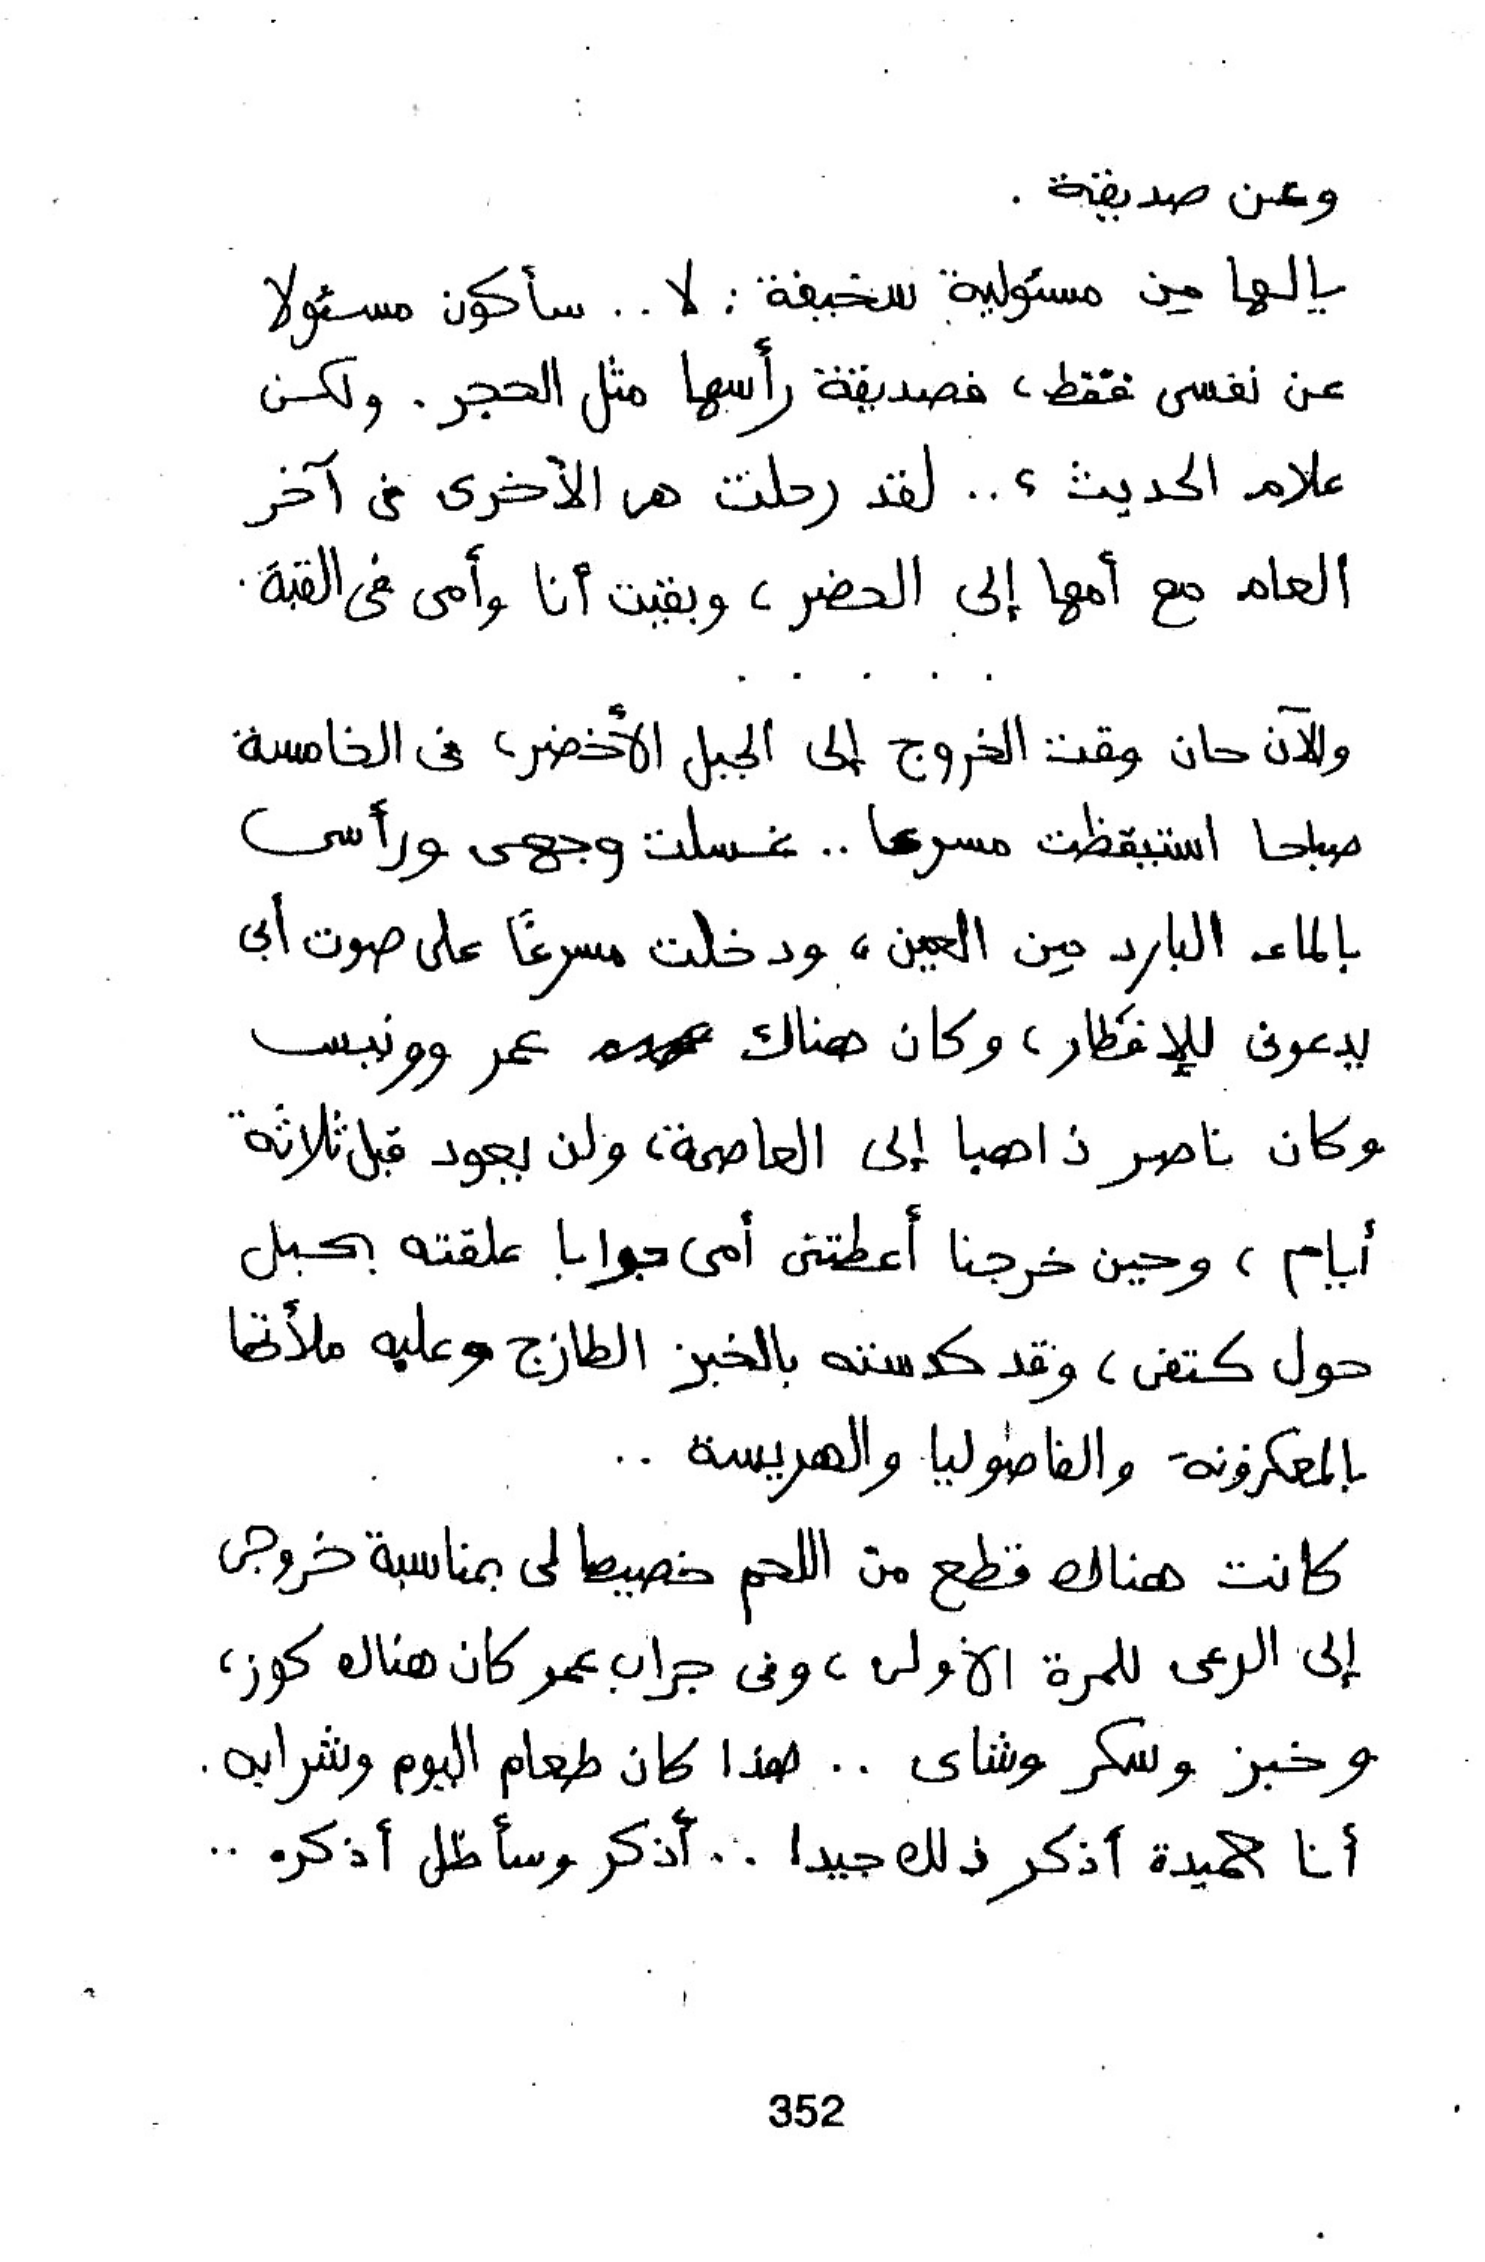 وعن صديقة .
يالها من مسئولية سخيفة : لا .. سأكون مسئولا
عن نفسى فقط ، فصديقة رأسها مثل الحجر . ولكن
علام الحديث ؟ .. لقد رحلت هى الأخرى فى آخر
العام مع أمها إلى الحضر ، وبقيت أنا وأمى فى القبة .
. . . . .
والآن حان وقت الخروج إلى الجبل الأخضر ، فى الخامسة
صباحا استيقظت مسرعا .. غسلت وجهى ورأسى
بالماء البارد من العين ، ودخلت مسرعًا على صوت أبى
يدعونى للإفطار ، وكان هناك عمر وونيس
وكان ناصر ذاهبا إلى العاصمة ، ولن يعود قبل ثلاثة
أيام ، وحين خرجنا أعطتنى أمى جرابا علقته بحبل
حول كتفى ، وقد كدسته بالخبز الطازج وعلبه ملأتها
بالمعكرونة والفاصوليا والهريسة ..
كانت هناك قطع من اللحم خصيصا لى بمناسبة خروجى
إلى الرعى للمرة الأولى ، وفى جراب عمر كان هناك كوز ،
وخبز وسكر وشاى .. هذا كان طعام اليوم وشرابه .
أنا حميدة أذكر ذلك جيدا .. أذكر وسأظل أذكره ..
352